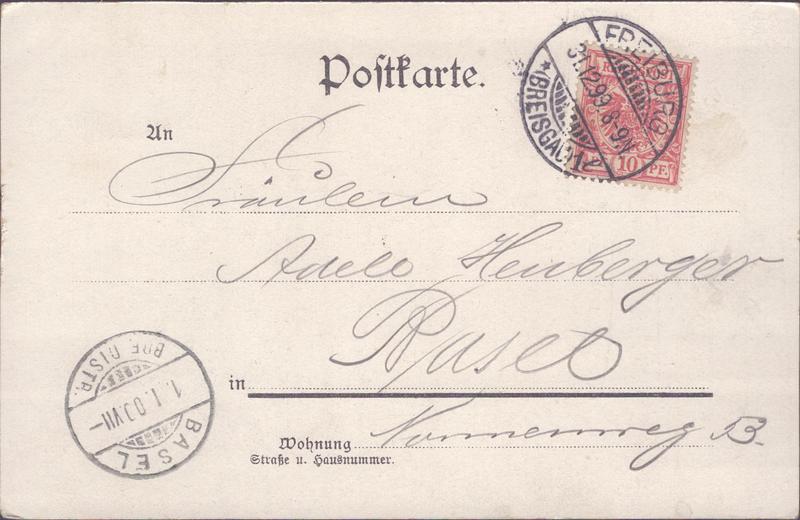 Postkarte.
FREIBURG
31.12.99. 8-9N.
* (BREISGAU) 1
10 PF
An
Fräulein
Adele Heuberger
Basel
in
Nonnenweg
Wohnung
Straße u. Hausnummer.
BRF. DISTR.
1. I. 00. VII-
BASEL